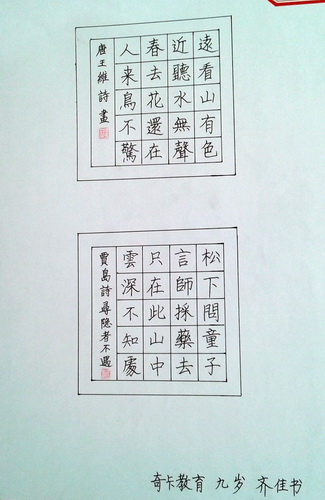 遠看山有色
近聽水無聲
春去花還在
人来鳥不驚
唐王維詩畫
松下問童子
言師採藥去
只在此山中
雲深不知處
賈島詩尋隐者不遇
奇卡教育 九岁 齐佳书